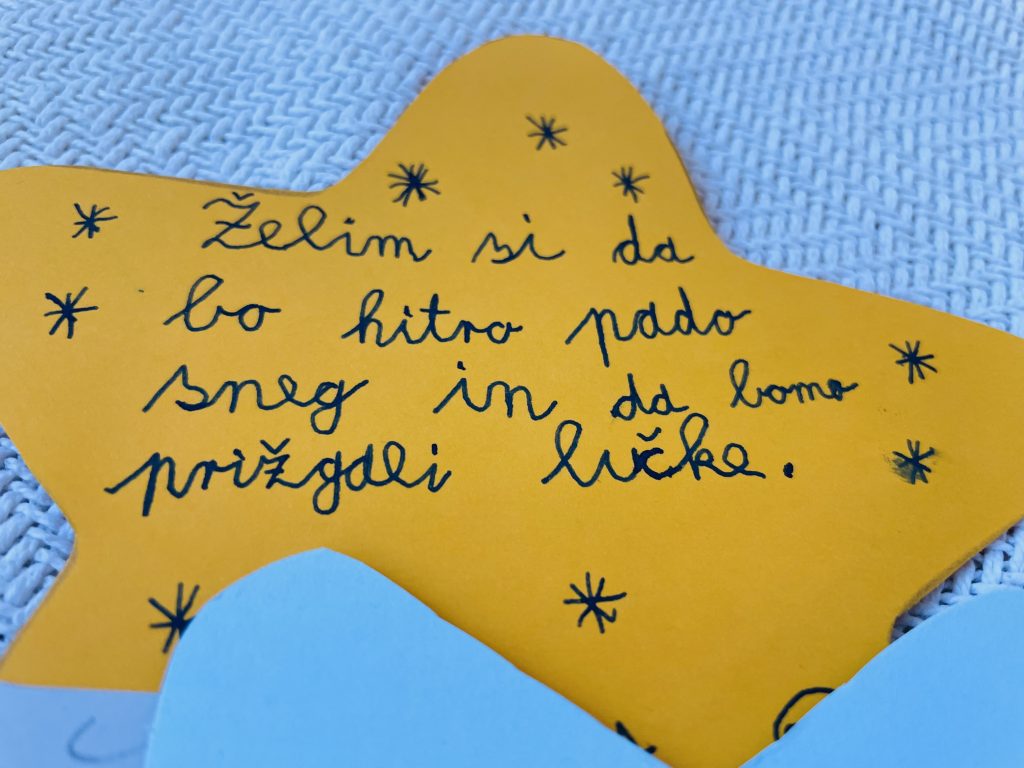 Želim si da
bo hitro pado
sneg in da bomo
prižgali lučke.